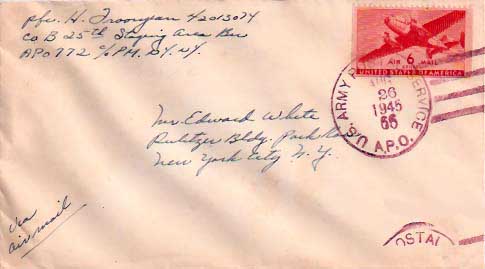 Pfc. H. 42013074
Co B 25th Staging Area Bn
APO 772 c/o P.M. N.Y. N.Y.
AIR 6 MAIL
CENTS
UNITED STATES OF AMERICA
U.S. ARMY SERVICE
26
1945
A.P.O.
Mr Edward White
Pulitzer Bldg. Park Row
New York City N.Y.
via
air mail
POSTAL